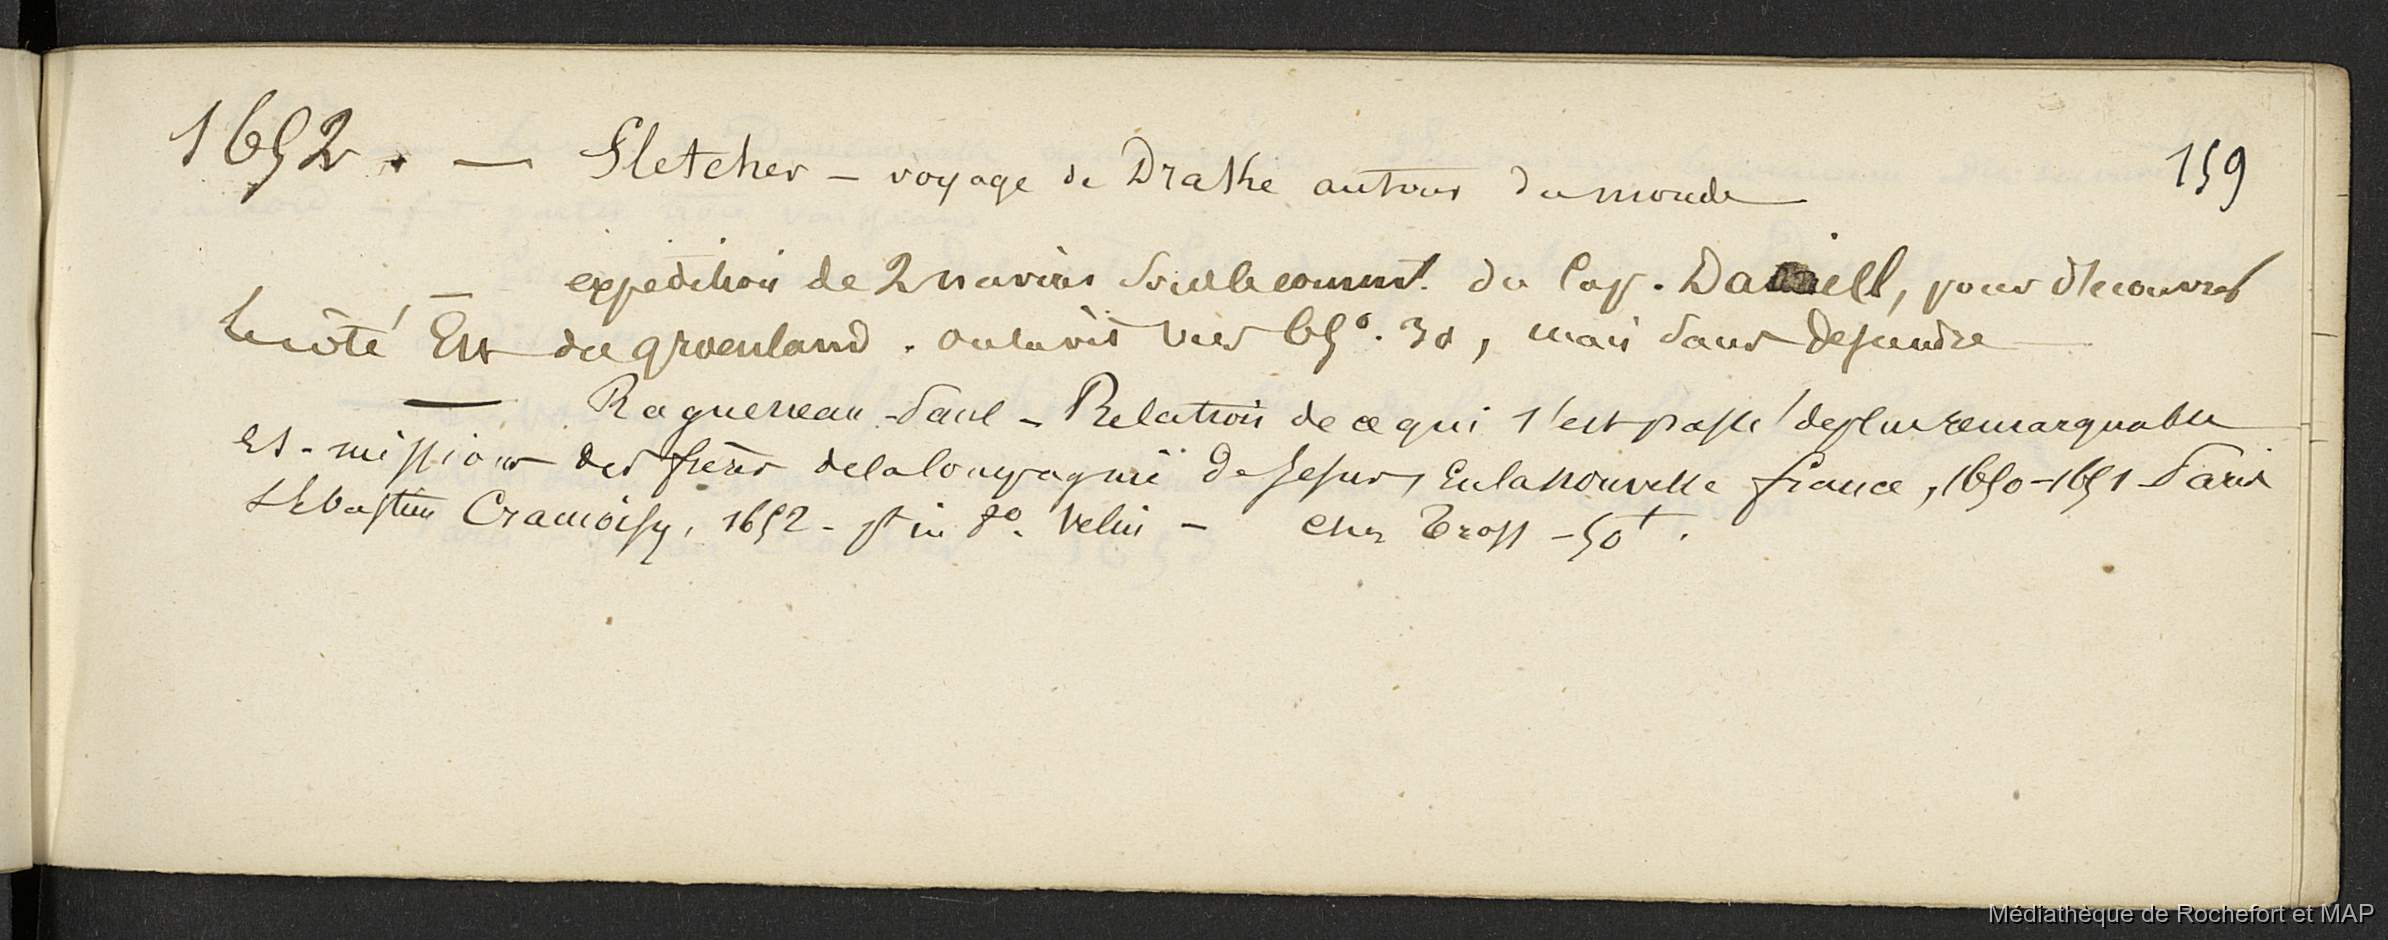 1652. — Fletcher — voyage de Drake autour du monde
159
— expedition de 2 navires sous le commt. du Cap. Daniell, pour découvrir
le côté Est du groenland. on la vit vers 65°. 30, mais sans descendre —
— Ragueneau - Paul - Relation de ce qui s'est passé de plus remarquable
es - missions des frères de la Compagnie de Jesus, en la nouvelle france, 1650-1651 Paris
Sebastien Cramoisy, 1652 - pt in 8°. velin - chez Tross - 50f.
Médiathèque de Rochefort et MAP